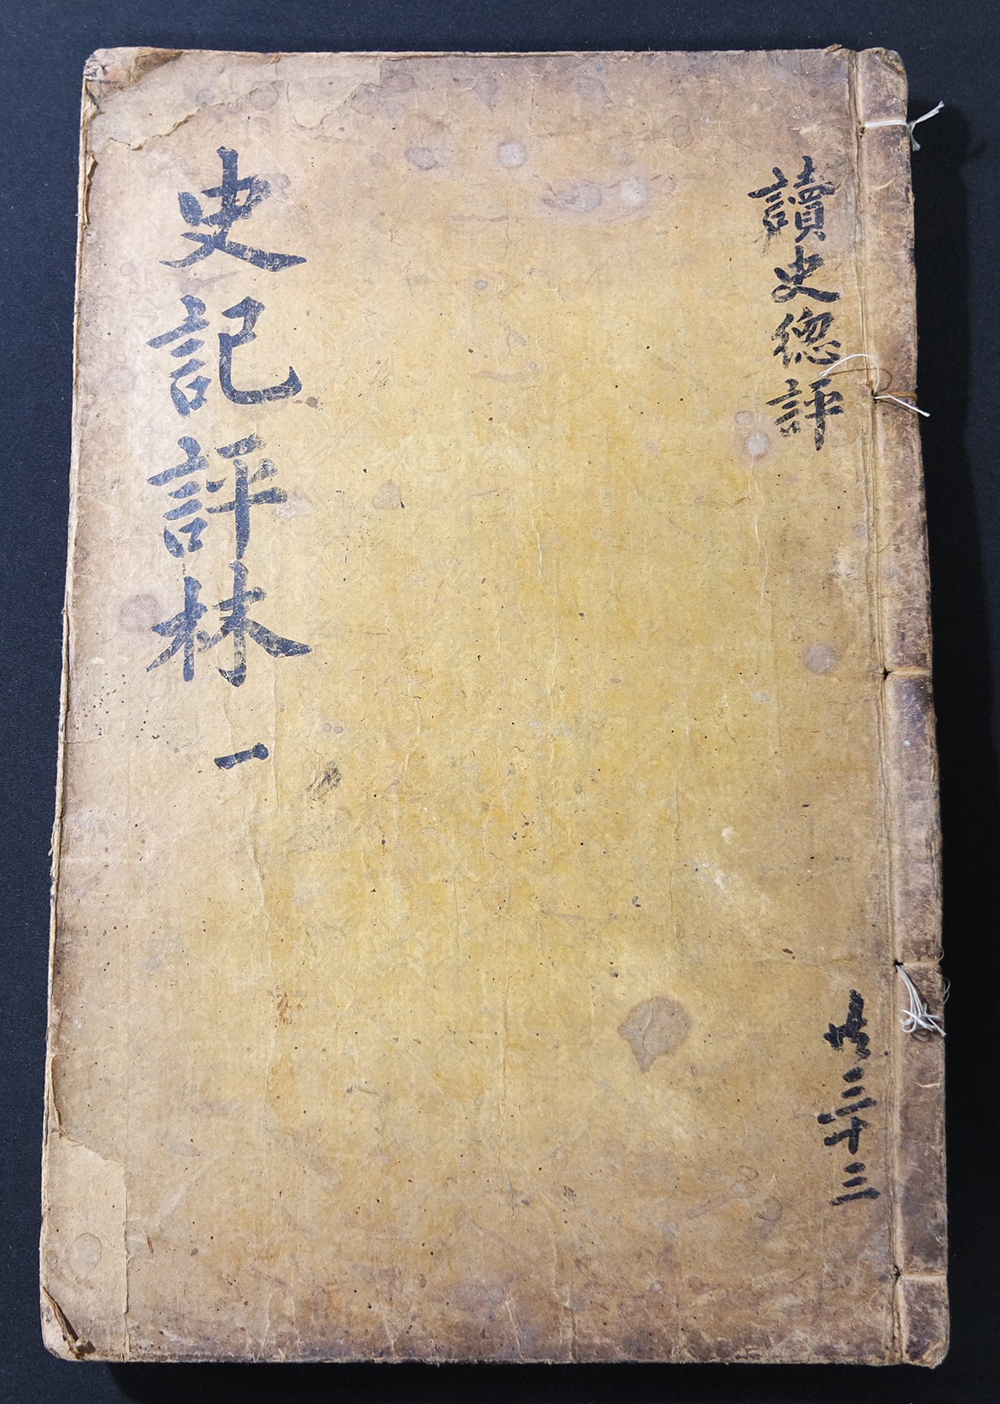 讀史緫評
共三十三
史記評林 一